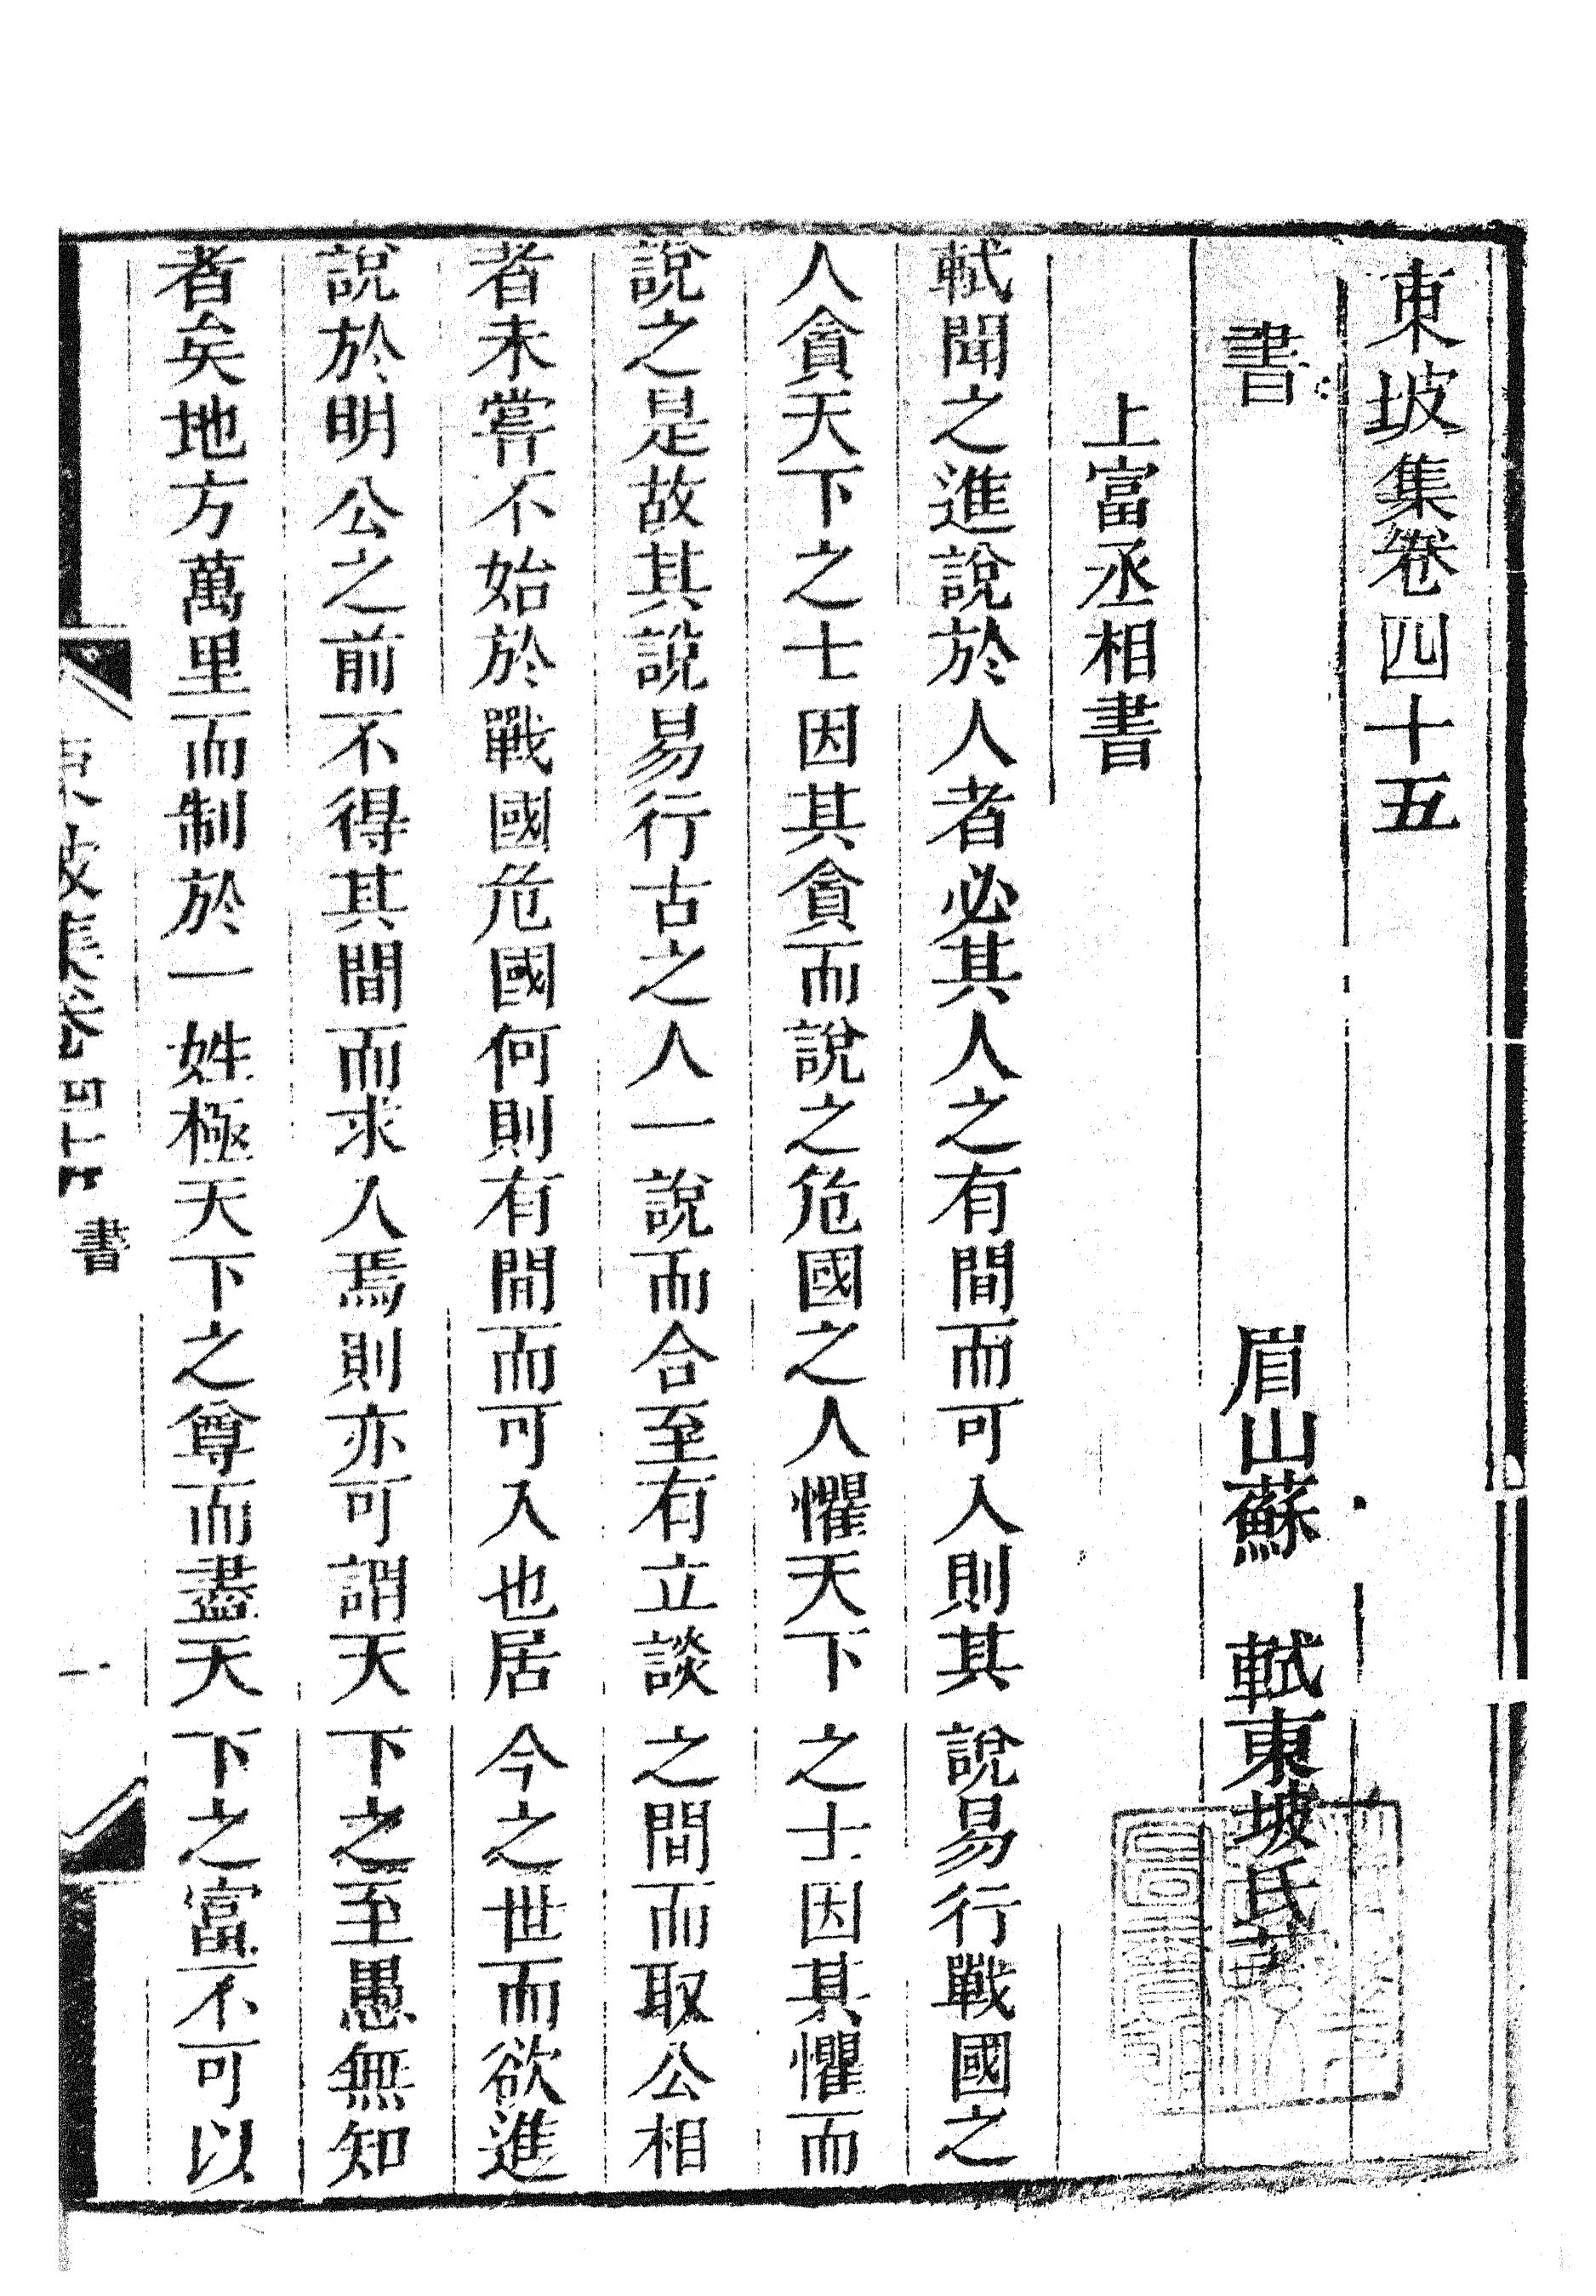 東坡集卷四十五
書　眉山蘇　軾東坡氏著
上富丞相書
軾聞之進說於人者必其人之有間而可入則其說易行戰國之
人貪天下之士因其貪而說之危國之人懼天下之士因其懼而
說之是故其說易行古之人一說而合至有立談之間而取公相
者未嘗不始於戰國危國何則有間而可入也居今之世而欲進
說於明公之前不得其間而求入焉則亦可謂天下之至愚無知
者矣地方萬里而制於一姓極天下之尊而盡天下之富不可以
東坡集卷四十五 書 一